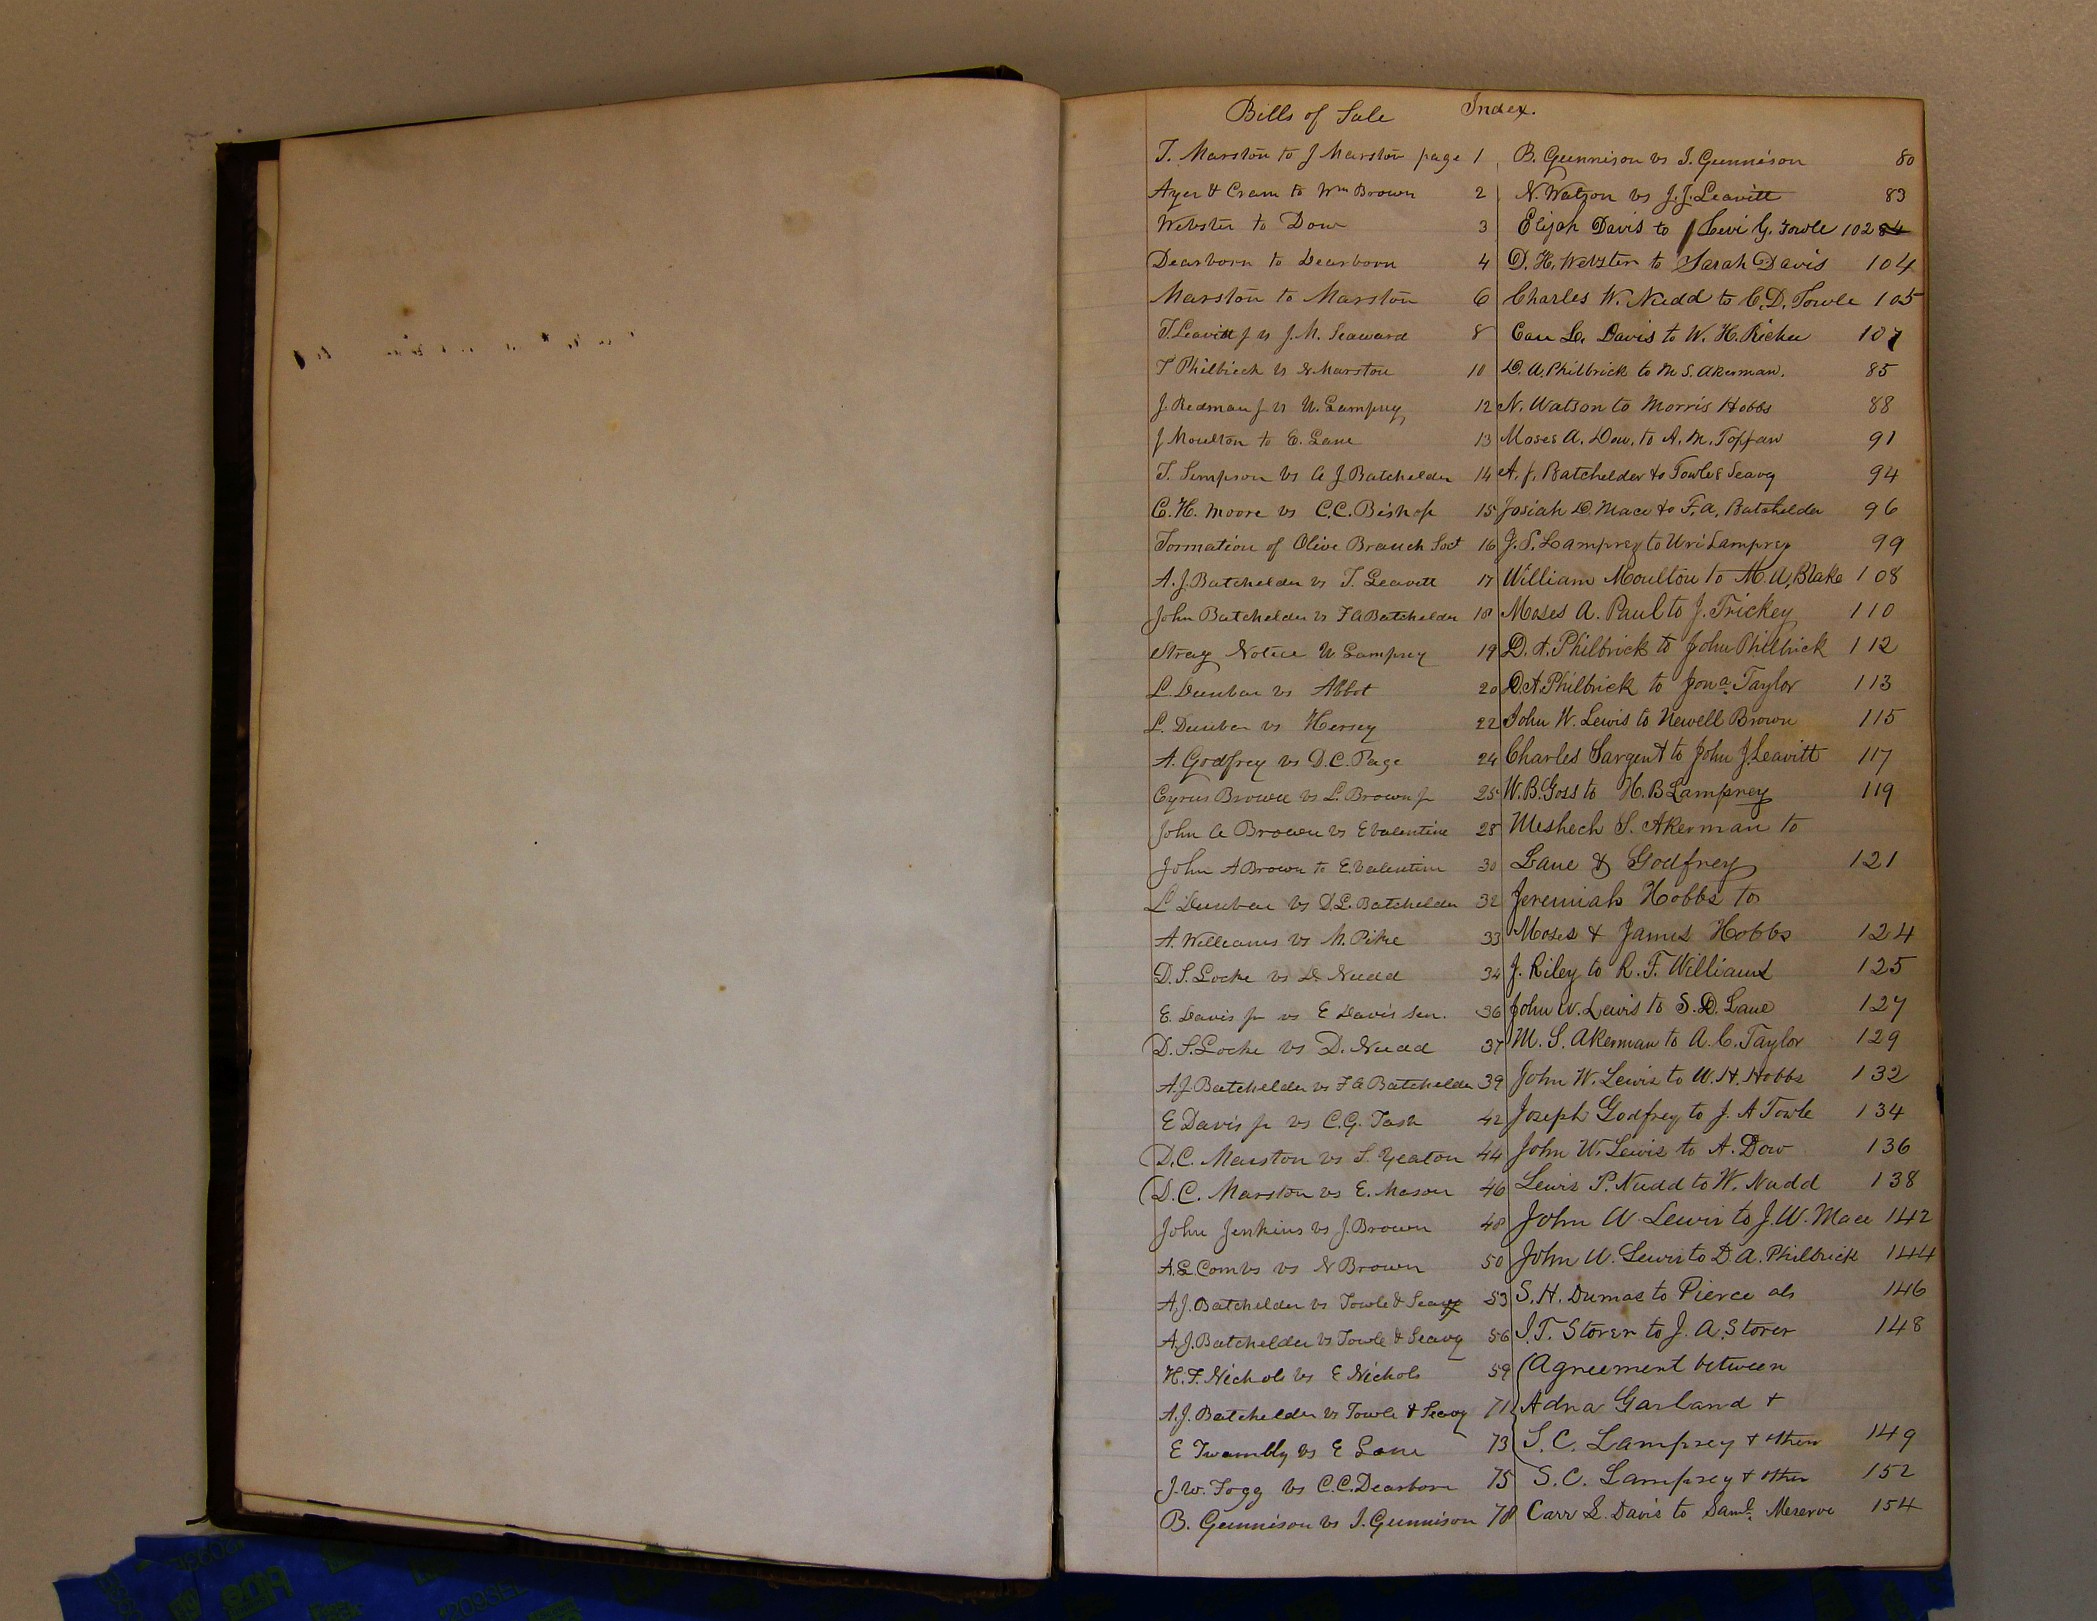 Bills of Sale Index.
T. Marston to J Marston page 1
Ayer & Cram to Wm Brown 2
Webster to Dow 3
Dearborn to Dearborn 4
Marston to Marston 6
T. Leavitt Jr vs J. M. Seaward 8
T Philbrick vs Marston 10
J. Redman Jr vs U. Lamprey 12
J Moulton to E. Lane 13
T. Simpson vs A J Batchelder 14
C. H. Moore vs C. C. Bishop 15
Formation of Olive Branch Soct 16
A. J. Batchelder vs T. Leavitt 17
John Batchelder vs F A Batchelder 18
Stray Notice U Lamprey 19
L. Dunbar vs Abbot 20
L. Dunbar vs Hersey 22
A. Godfrey vs D. C. Page 24
Cyrus Brown vs L. Brown Jr 25
John A Brown vs E Valentine 28
John A Brown to E. Valentine 30
L Dunbar vs D. L. Batchelder 32
A. Williams vs M. Pike 33
D. S. Locke vs D Nudd 34
E. Davis Jr vs E Davis Sen. 36
D. S. Locke vs D. Nudd 37
A. J. Batchelder vs F A Batchelder 39
E Davis Jr vs C. G. Tash 42
D. C. Marston vs S. Yeaton 44
D. C. Marston vs E. Mason 46
John Jenkins vs J. Brown 48
A. E. Combs vs N Brown 50
A. J. Batchelder vs Towle & Seavy 53
A. J. Batchelder vs Towle & Seavy 56
H. F. Nichols vs E Nichols 59
A. J. Batchelder vs Towle & Seavy 71
E Twombly vs E Lane 73
J. W. Fogg vs C. C. Dearborn 75
B. Gunnison vs I. Gunnison 78
B. Gunnison vs I. Gunnison 80
N. Watson vs J. J. Leavitt 83
Elijah Davis to Levi G. Towle 102 84
D. H. Webster to Sarah Davis 104
Charles W. Nudd to C. D. Towle 105
Carr L. Davis to W. H. Richer 107
D. A. Philbrick to M S. Akerman. 85
N. Watson to Morris Hobbs 88
Moses A. Dow, to A. M. Toppan 91
A. J. Batchelder to Towle & Seavy 94
Josiah D. Mace to F. A. Batchelder 96
J. S. Lamprey to Uri Lamprey 99
William Moulton to M. A. Blake 108
Moses A. Paul to J. Trickey 110
D. A. Philbrick to John Philbrick 112
D. A Philbrick to Jona. Taylor 113
John W. Lewis to Newell Brown 115
Charles Sargent to John J. Leavitt 117
W. B. Goss to H. B Lamprey 119
Meshech S. Akerman to
Lane & Godfrey 121
Jeremiah Hobbs to
Moses & James Hobbs 124
J. Riley to R. F. Williams 125
John W. Lewis to S. D. Lane 127
M. S. Akerman to A. C. Taylor 129
John W. Lewis to W. H. Hobbs 132
Joseph Godfrey to J. A Towle 134
John W. Lewis to A. Dow 136
Lewis P. Nudd to W. Nudd 138
John W Lewis to J. W. Mace 142
John W. Lewis to D. A. Philbrick 144
S. H. Dumas to Pierce als 146
I. T. Storer to J. A. Storer 148
Agreement between
Adna Garland &
S. C. Lamprey & others 149
S. C. Lamprey & other 152
Carr L. Davis to Saml. Meserve 154